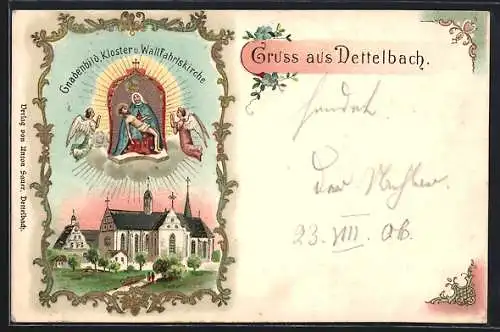 Gnadenbild, Kloster u. Wallfahrtskirche
Gruss aus Dettelbach.
sendet
23. VIII. 06.
Verlag von Anton Sauer, Dettelbach.